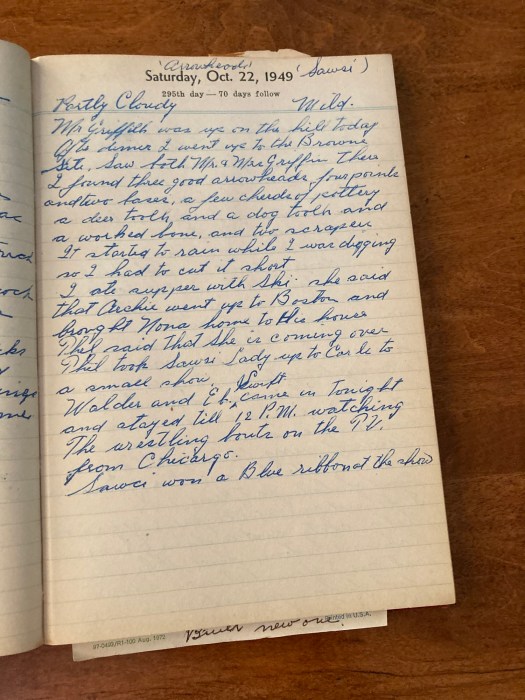 'Arrowheads' 'Sawsi')
Saturday, Oct. 22, 1949
295th day—70 days follow
Partly Cloudy Mild.
Mr Griffith was up on the hill today
After dinner I went up to the Browne
Site, Saw both Mr. & Mrs Griffin there
I found three good arrowheads, four points
and two bases, a few cherds of pottery
a deer tooth, and a dog tooth and
a worked bone, and two scrapers
It started to rain while I was digging
so I had to cut it short
I ate supper with Ski she said
that Archie went up to Boston and
brought Nona home to His house
Phil said that she is coming over
Phil took Sawsi Lady up to Earle to
a small show.
Walder and Eb. Swift came in Tonight
and stayed till 12 P.M. watching
The wrestling bouts on the T.V.
from Chicargo.
Sawci won a Blue ribbon at the show
new one.
Printed in U.S.A.
Aug. 1972